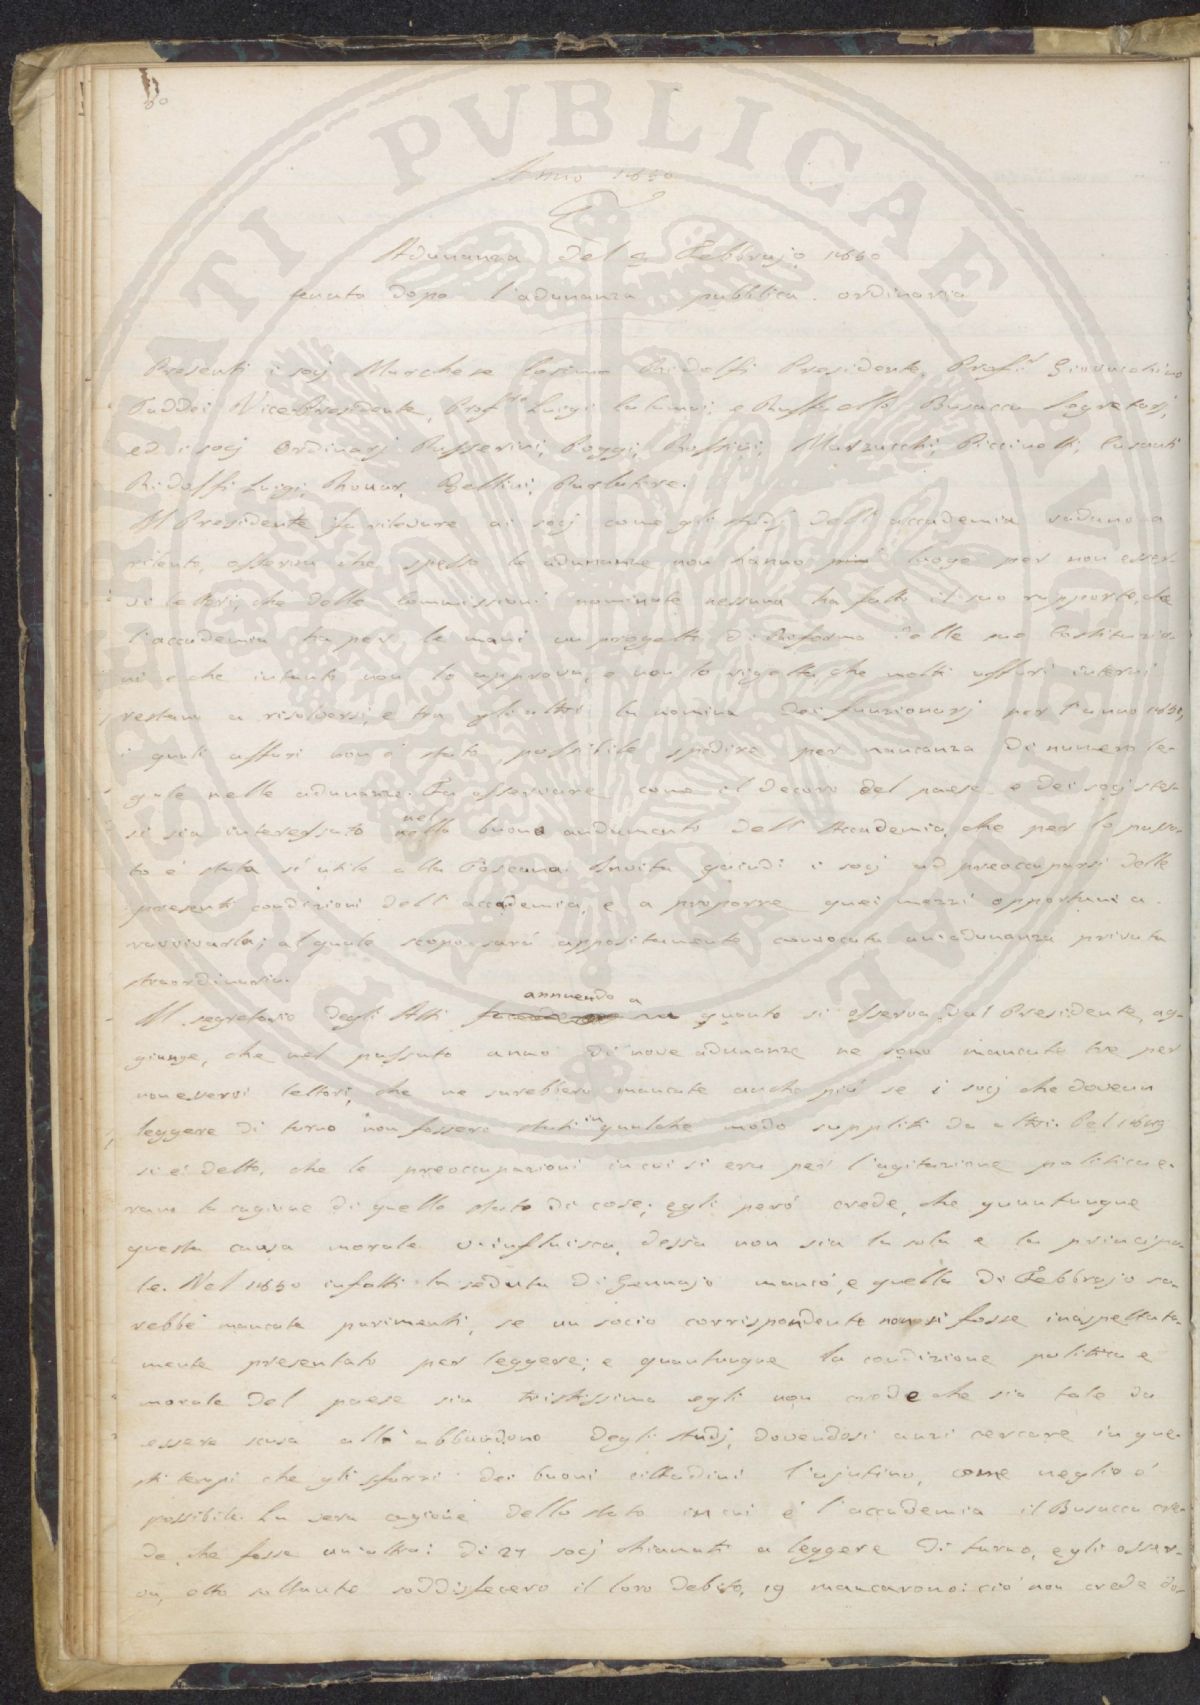 80
Anno 1850
Adunanza del 3 Febbrajo 1850
tenuta dopo l'adunanza pubblica ordinaria
Presenti i socj Marchese Cosimo Ridolfi Presidente, Prof.r Giovacchino
Taddei Vice Presidente, Prof. Luigi Calamai, e Raffaello Busacca Segretarj,
ed i socj Ordinarj Passerini, Poggi, Maffei, Marzucchi, Piccinetti, Cusanti
Ridolfi Luigi, Rouar, Bellini, Parlatore.
Il Presidente fa rilevare ai socj come gli studj dell'accademia vadano a
rilento, osserva che spesso le adunanze non hanno più luogo per non esser-
vi lettori, che delle Commissioni nominate nessuna ha fatto il suo rapporto, che
l'accademia ha per le mani un progetto di Riforma delle sue Costituzio-
ni e che intanto non lo approva, e non lo rigetta, che molti affari interni
restano a risolversi, e tra gli altri la nomina dei funzionarj per l'anno 1850,
i quali affari non è stato possibile spedire per mancanza di numero le-
gale nelle adunanze. Fa osservare come il decoro del paese e dei socj stes-
si sia interessato nel
nello buono andamento dell'Accademia, che per lo passa-
to è stata sì utile alla Toscana. Invita quindi i socj ad preoccuparsi delle
presenti condizioni dell'accademia, e a proporre quei mezzi opportuni a
ravvivarla; al quale scopo sarà appositamente convocata un'adunanza privata
straordinaria.
Il segretario degli Atti annuendo a quanto si osserva dal Presidente, ag-
giunge, che nel passato anno di nove adunanze ne sono mancate tre per
non esservi lettori, che ne sarebbero mancate anche più se i socj che dovean
leggere di turno non fossero stati in qualche modo suppliti da altri. Pel 1849
si è detto, che le preoccupazioni in cui si era per l'agitazione politica e-
rano la cagione di quello stato di cose; egli però crede, che quantunque
questa causa morale v'influisca, dessa non sia la sola e la principa-
le. Nel 1850 infatti la seduta di Gennajo mancò, e quella di Febbrajo sa-
rebbe mancata parimenti, se un socio corrispondente non si fosse inaspettata-
mente presentato per leggere; e quantunque la condizione politica e
morale del paese sia tristissima egli non crede che sia tale da
essere scusa all'abbandono degli studj, dovendosi anzi cercare in que-
sti tempi che gli sforzi dei buoni cittadini l'ajutino, come meglio è
possibile. La vera cagione dello stato in cui è l'accademia il Busacca cre-
de, che fosse un'altra: di 27 socj chiamati a leggere di turno, egli osser-
va, otto soltanto soddisfecero il loro debito, 19 mancarono: ciò non crede do-